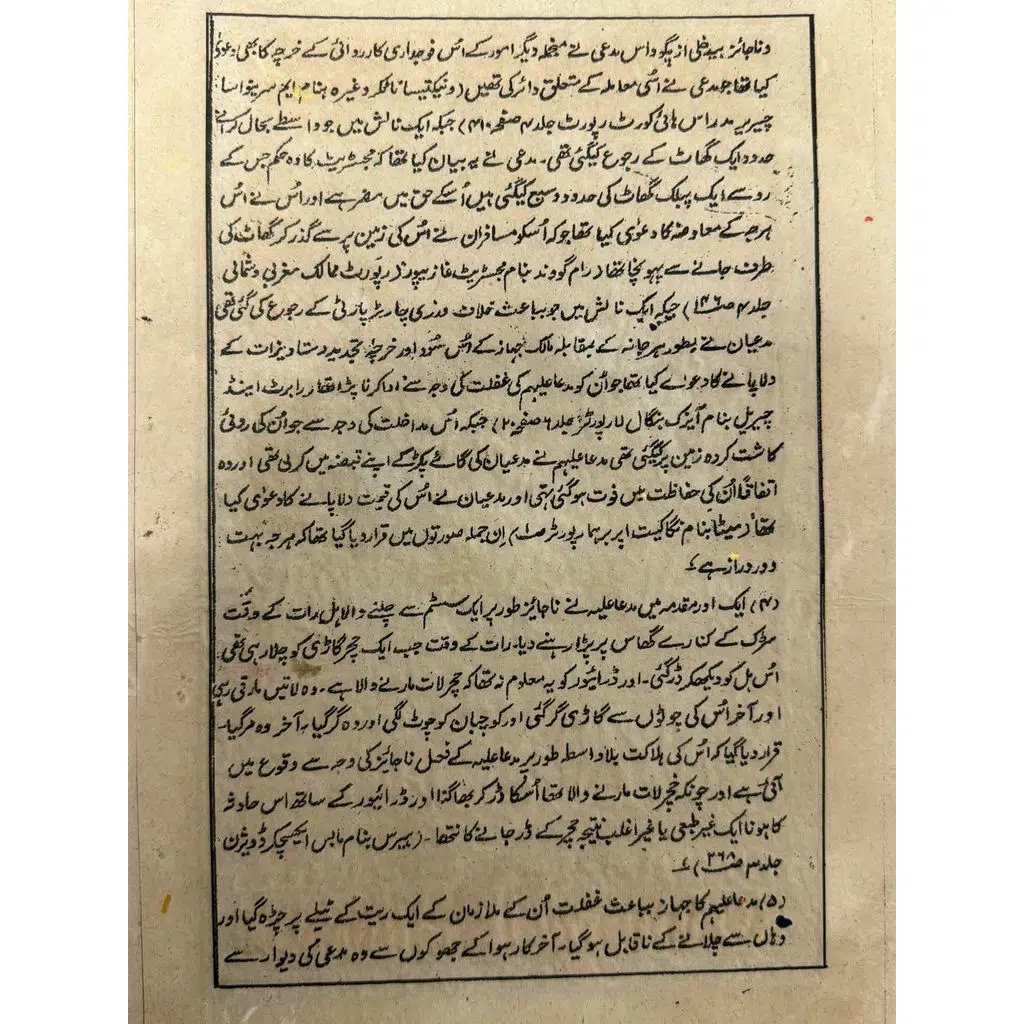 و ناجائز بیدخلی از پگو داس مدعی نے منجملہ دیگر امور کے اُس فوجداری کارروائی کے خرچہ کا بھی دعویٰ
کیا تھا جو مدعی نے اُسی معاملہ کے متعلق دائر کی تھیں (ونیکتیسا نائکر وغیرہ بنام ایم سرینواسا
چیریر مدراس ہائی کورٹ رپورٹ جلد ۴ صفحہ ۴۱۰) جبکہ ایک نالش میں جو واسطے بحال کرانے
حدود ایک گھاٹ کے رجوع کیگئی تھی۔ مدعی نے یہ بیان کیا تھا کہ مجسٹریٹ کا وہ حکم جس کے
رو سے ایک پبلک گھاٹ کی حدود وسیع کیگئی ہیں اُسکے حق میں مضر ہے اور اُس نے اُس
ہرجہ کے معاوضہ کا دعوٰی کیا تھا جو کہ اُسکو مسافران نے اُس کی زمین پر سے گذر کر گھاٹ کی
طرف جانے سے پہونچا تھا (رام گووند بنام مجسٹریٹ غازیپور رپورٹ ممالک مغربی و شمالی
جلد ۴ صفحہ ۱۴۶) جبکہ ایک نالش میں جو بباعث خلاف ورزی چارٹر پارٹی کے رجوع کی گئی تھی
مدعیان نے بطور ہرجانہ کے بمقابلہ مالک جہاز کے اُس سُود اور خرچہ تجدید دستاویزات کے
دلا پانے کا دعوے کیا تھا جو اُن کو مدعاعلیہم کی غفلت کی وجہ سے ادا کرنا پڑا تھا (رابرٹ اینڈ
چیریل بنام آیزک بنگال لا رپورٹر جلد ۶ صفحہ ۲۰) جبکہ اُس مداخلت کی وجہ سے جو اُن کی روئی
کاشت کردہ زمین پر کیگئی تھی مدعاعلیہم نے مدعیان کی گائے پکڑ کے اپنے قبضہ میں کر لی تھی اور وہ
اتفاقاً اُن کی حفاظت میں فوت ہوگئی تہی اور مدعیان نے اُس کی قیمت دلا پانے کا دعوٰی کیا
تھا (میٹا بنام نگاکیت، اپر برہما رپورٹر صفحہ ۱) اِن جملہ صورتوں میں قرار دیا گیا تھا کہ ہرجہ بہت
دور دراز ہے
(۴) ایک اور مقدمہ میں مدعاعلیہ نے ناجائز طور پر ایک سسٹم سے چلنے والا ہل رات کے وقت
سڑک کے کنارے گھاس پر پڑا رہنے دیا۔ رات کے وقت جب ایک خچر گاڑی کو چلا رہی تھی
اُس ہل کو دیکھکر ڈر گئی۔ اور ڈرائیور کو یہ معلوم نہ تھا کہ خچر لات مارنے والا ہے۔ وہ لاتیں مارتی رہی
اور آخر اُس کی چوٹوں سے گاڑی گر گئی اور کوچبان کو چوٹ لگی اور وہ گر گیا۔ آخر وہ مر گیا۔
قرار دیا گیا کہ اُس کی ہلاکت بلاواسطہ طور پر مدعاعلیہ کے فعل ناجائز کی وجہ سے وقوع میں
آئی ہے اور چونکہ خچر لات مارنے والا تھا اُسکا ڈر کر بھاگنا اور ڈرائیور کے ساتھ اس حادثہ
کا ہونا ایک غیر طبعی یا غیر اغلب نتیجہ خچر کے ڈر جانے کا نتھا۔ (ہیرس بنام مابس ایکسچیکر ڈویژن
جلد ۳ صفحہ ۲۶۸)
(۵) مدعاعلیہم کا جہاز بباعث غفلت اُن کے ملازمان کے ایک ریت کے ٹیلے پر چڑہ گیا اور
وہاں سے چلانے کے ناقابل ہوگیا۔ آخر کار ہوا کے جھوکوں سے وہ مدعی کی دیوار سے